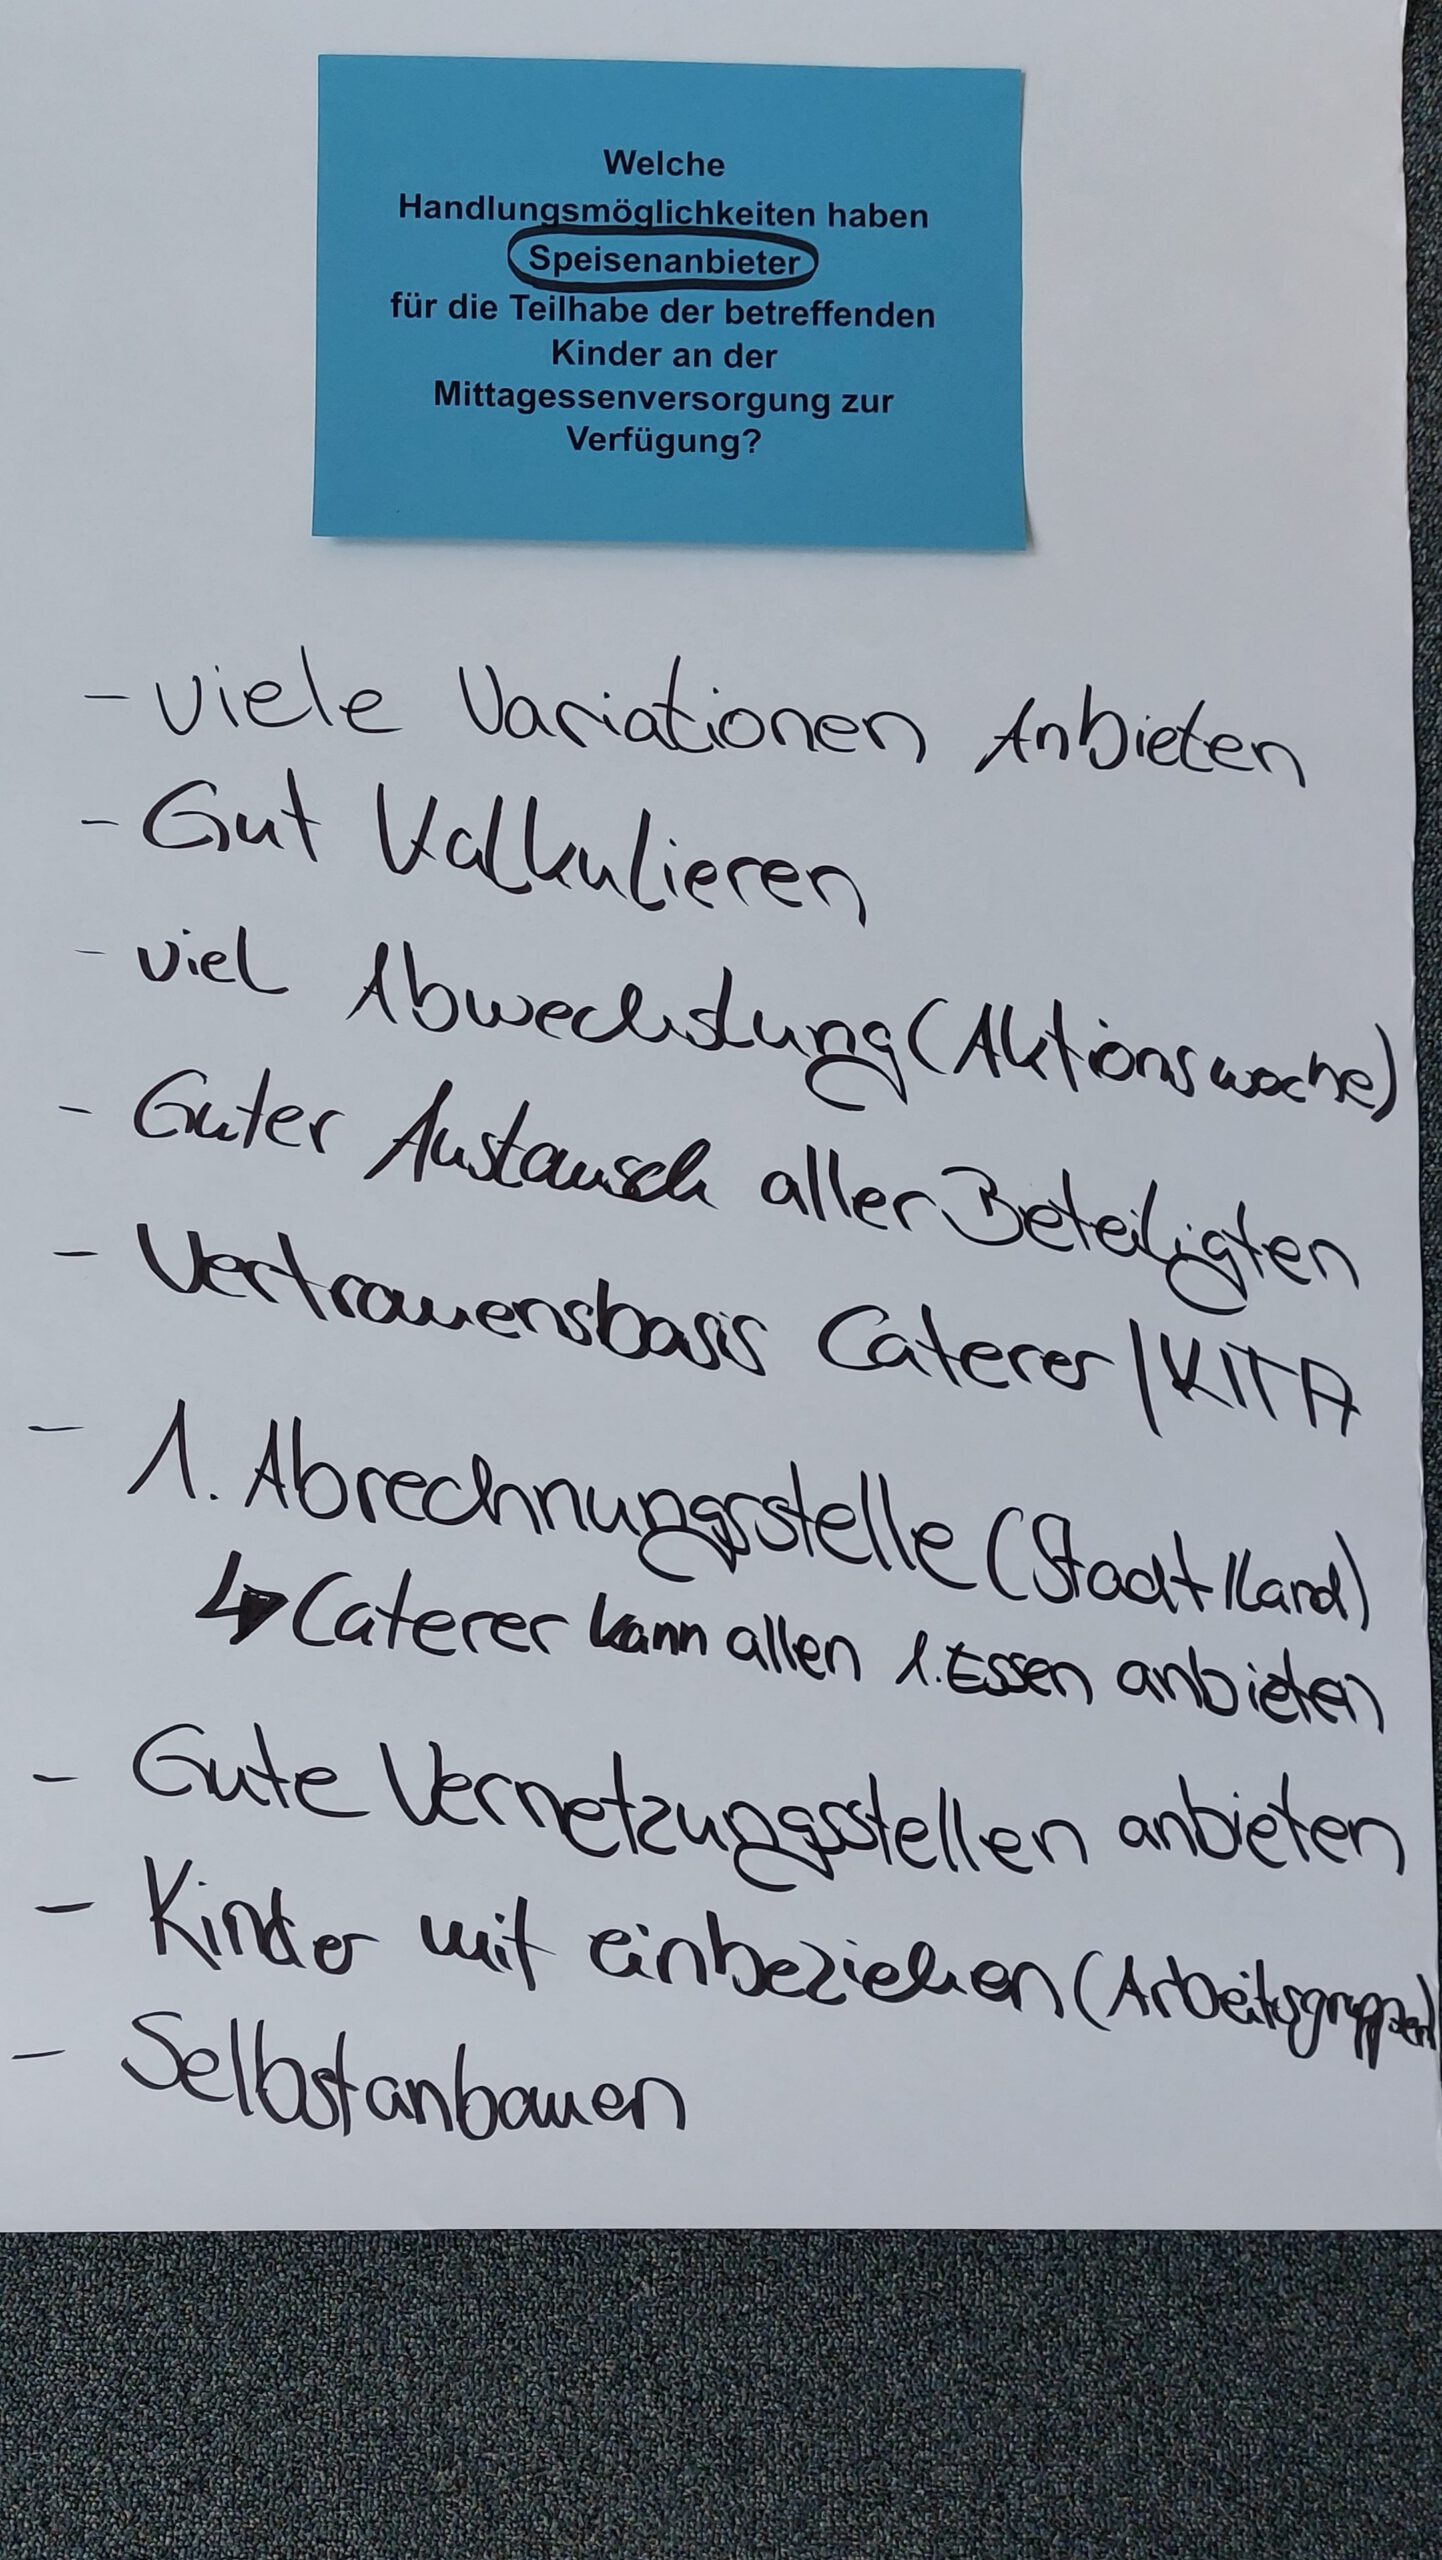 Welche
Handlungsmöglichkeiten haben
Speisenanbieter
für die Teilhabe der betreffenden
Kinder an der
Mittagessenversorgung zur
Verfügung?
- viele Variationen Anbieten
- Gut Kalkulieren
- viel Abwechslung (Aktionswoche)
- Guter Austausch aller Beteiligten
- Vertrauensbasis Caterer / KITA
- 1. Abrechnungsstelle (Stadt/Land)
↳ Caterer kann allen 1. Essen anbieten
- Gute Vernetzungsstellen anbieten
- Kinder mit einbeziehen (Arbeitsgruppen)
- Selbstanbauen